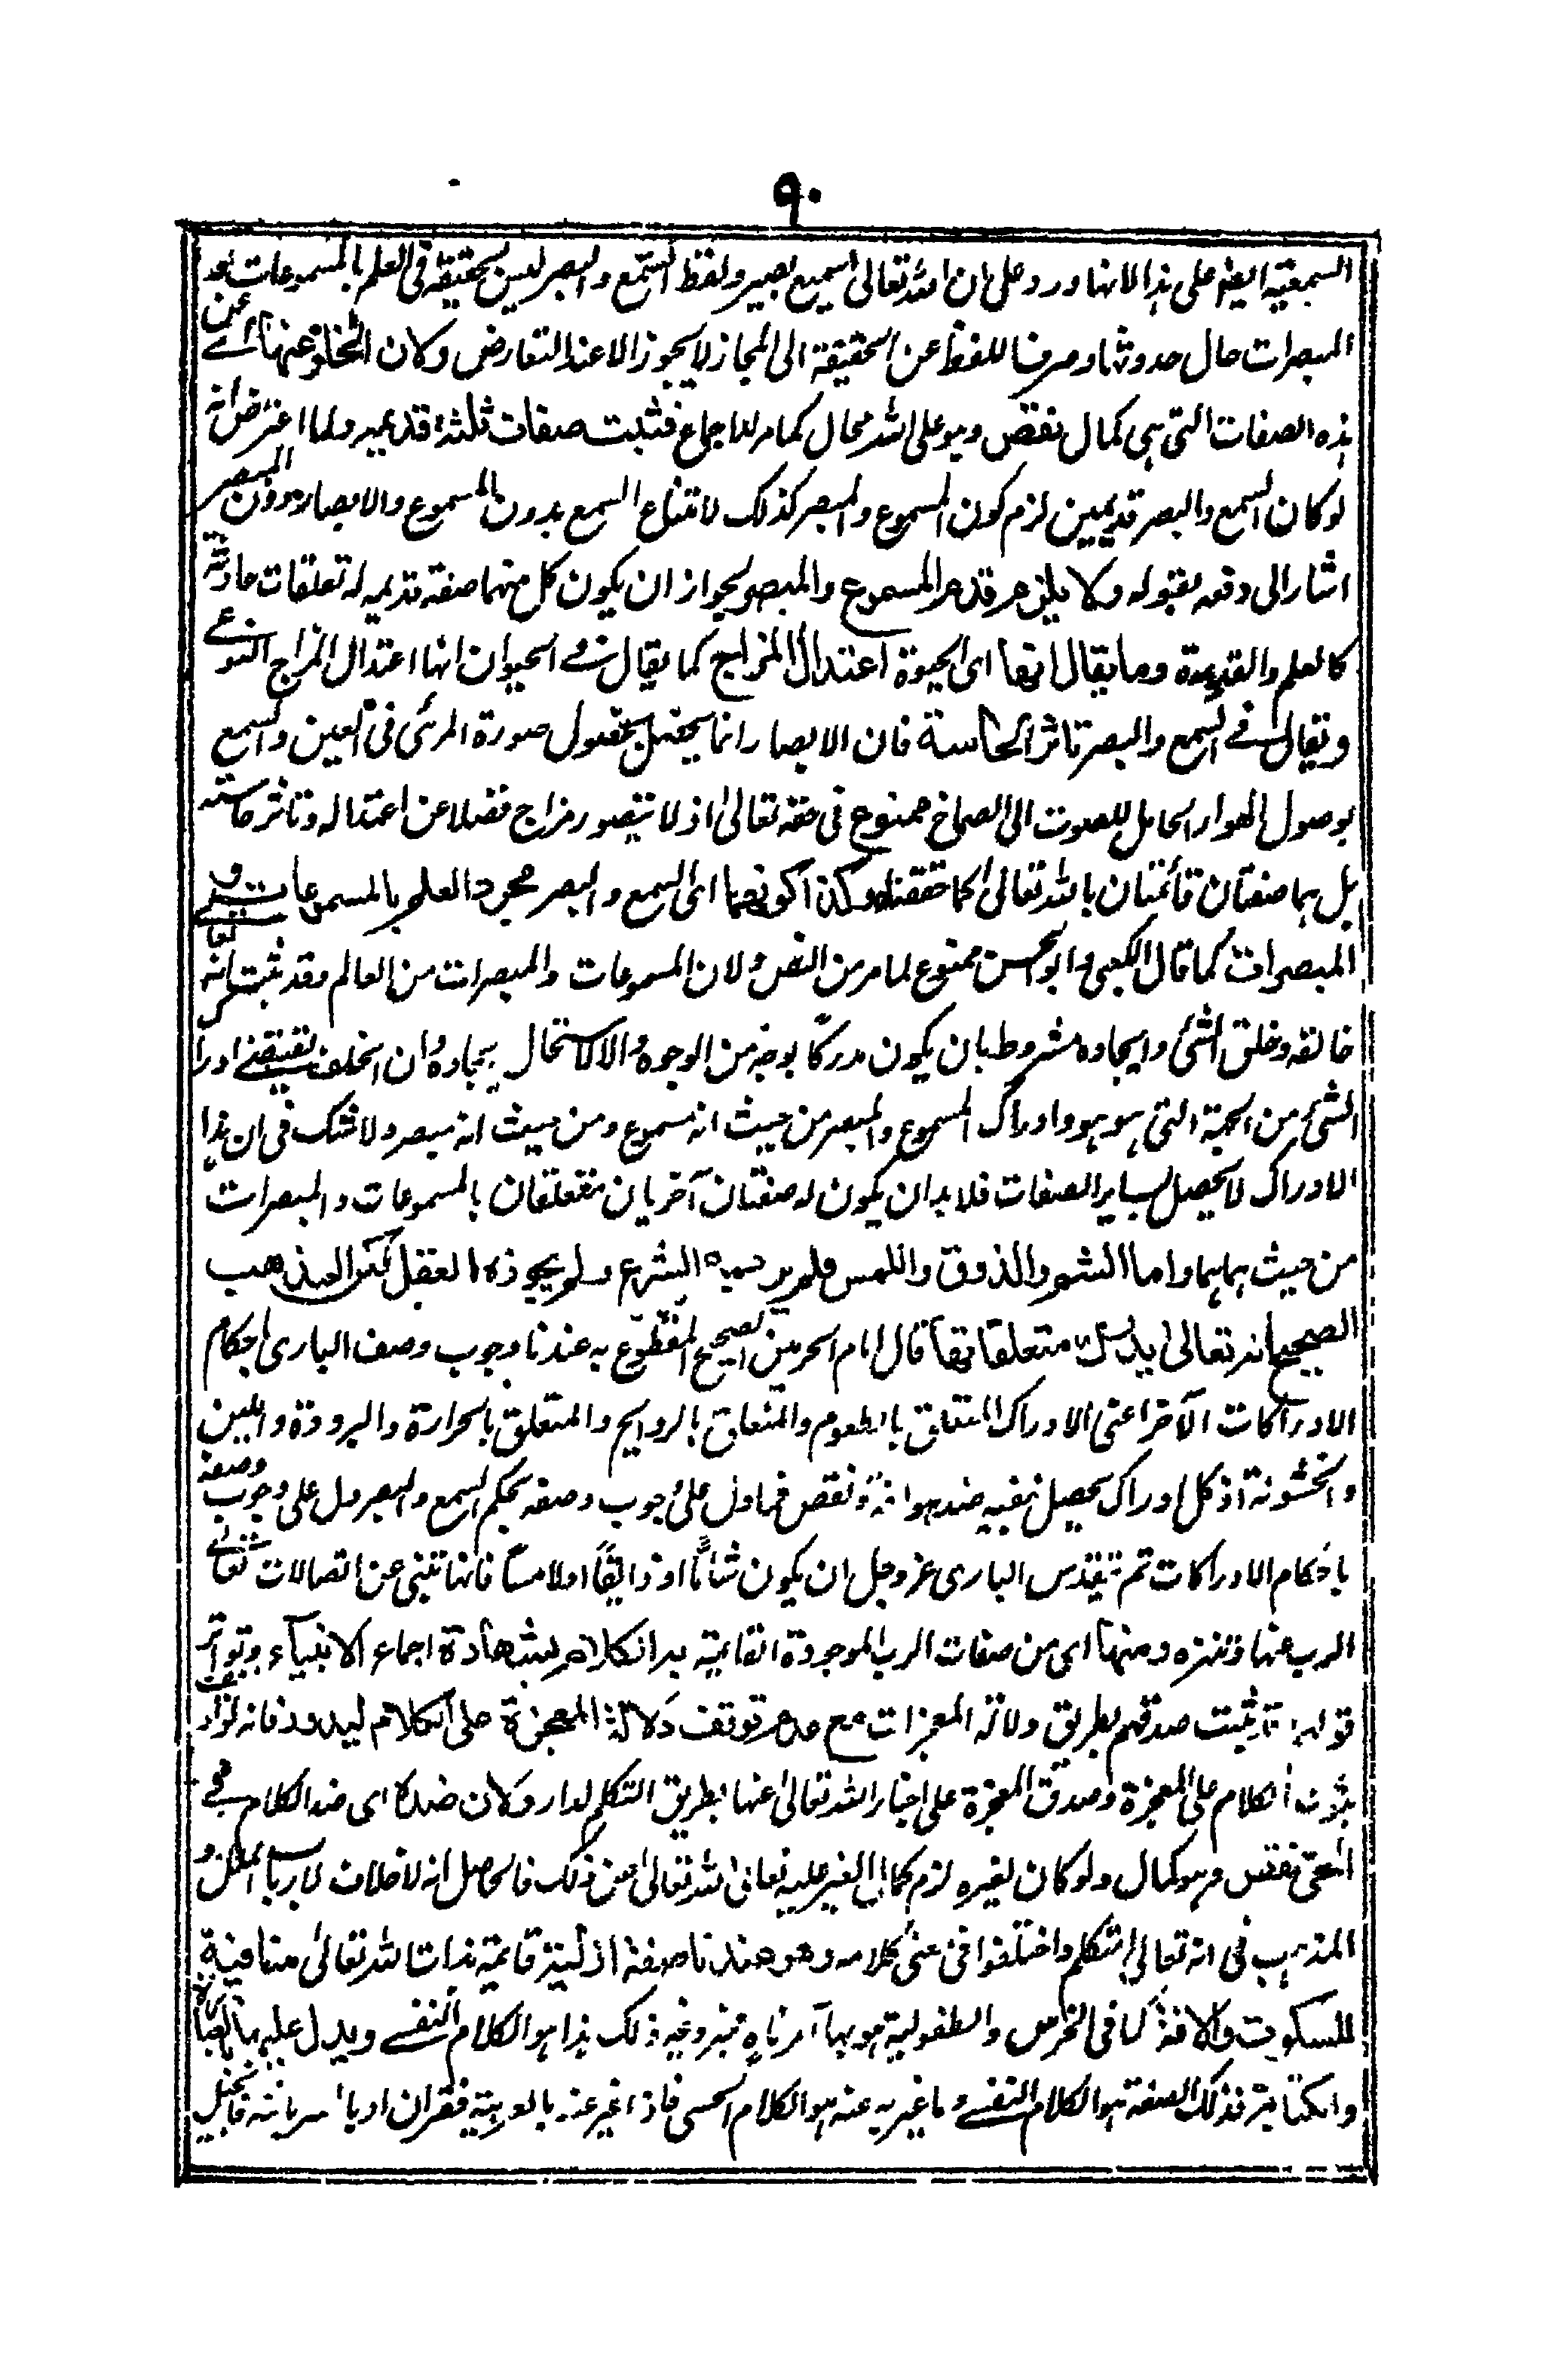 ٩٠
السمعية ايضا على هذا لانها ورد على ان الله تعالى سميع بصير ولفظ السمع والبصر ليس بحقيقة فى العلم بالمسموعات
المبصرات حال حدوثها وصرف اللفظ عن الحقيقة الى المجاز لا يجوز الا عند التعارض وكان الخلو عنها اى عن
هذه الصفات التى هى كمال نقص وهو على الله محال كما مر للاجماع فثبت صفات ثلثة قديمة ولما اعترض انه
لو كان السمع والبصر قديمين لزم كون المسموع والمبصر كذلك لامتناع السمع بدون المسموع والابصار دون المبصر
اشار الى دفعه بقوله ولا يلزم قدم المسموع والمبصر لجواز ان يكون كل منهما صفة قديمه له تعلقات حادثة
كالعلم والقدرة وما يقال انها اى الحيوة اعتدال المزاج كما يقال فى الحيوان انها اعتدال المزاج النوعى
ويقال فى السمع والبصر تاثر الحاسة فان الابصار انما يحصل بحصول صورة المرئى فى العين والسمع
بوصول الهواء الحامل للصوت الى الصماخ ممنوع فى حقه تعالى اذ لا يتصور مزاج فضلا عن اعتداله وتاثر حاسته
بل هما صفتان قائمتان بالله تعالى كما حققناه وكذا كونهما اى السمع والبصر مجرد العلم بالمسموعات و
المبصرات كما قال الكعبى وابو الحسن ممنوع لما مر من النص ولان المسموعات والمبصرات من العالم وقد ثبت انه تعالى
خالقه وخلق الشئ وايجاده مشروط بان يكون مدركا بوجه من الوجوه والا لاستحال ايجاده وان الخلق يقتضى ادراك
الشئ من الجهة التى هو هو وادراك المسموع والمبصر من حيث انه مسموع ومن حيث انه مبصر ولا شك فى ان هذا
الادراك لا يحصل بساير الصفات فلا بد ان يكون له صفتان آخريان متعلقتان بالمسموعات والمبصرات
من حيث هما هما واما الشم والذوق واللمس فلم يرد به الشرع ولم يجوزه العقل لكن المذهب
الصحيح انه تعالى يدرك متعلقاتها قال امام الحرمين الصحيح المقطوع به عندنا وجوب وصف البارى باحكام
الادراكات الآخر اعنى الادراك المتعلق بالطعوم والمتعلق بالروايح والمتعلق بالحرارة والبرودة واللين
والخشونة اذ كل ادراك يحصل بنفيه ضد هو آفة ونقص فما دل على وجوب وصفه بحكم السمع والبصر دل على وجوب وصفه
باحكام الادراكات ثم يتقدس البارى عز وجل ان يكون شاما او ذايقا او لامسا فانها تنبئ عن اتصالات تعالى
الرب عنها وتنزه ومنها اى من صفات الرب الموجودة القائمة به الكلام بشهادة اجماع الانبياء وتواتر
قولهم ثبت صدقهم بطريق دلالة المعجزات مع عدم توقف دلالة المعجزة على الكلام ليدور فانه لو توقف
ثبوت الكلام على المعجزة وصدق المعجزة على اخبار الله تعالى عنها بطريق التكلم لدار وكان ضده اى ضد الكلام فى
الحى نقص وهو كمال ولو كان لغيره لزم كمال الغير عليه تعالى الله تعالى عن ذلك فالحاصل انه لا خلاف لارباب الملل و
المذاهب فى انه تعالى متكلم واختلفوا فى معنى كلامه وهو عندنا صفة ازلية قايمة بذات الله تعالى منافية
للسكوت والآفة كما فى الخرس والطفولية هو بها آمر ناه مخبر وغير ذلك هذا هو الكلام النفسى ويدل عليها بالعبارة
والكتابة فذلك الصفة هو الكلام النفسى وما عبر به عنه هو الكلام الحسى فاذا عبر عنه بالعربية فقران او بالسريانية فانجيل